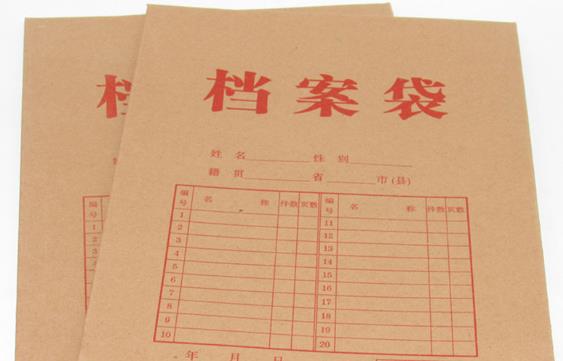 档案袋
姓名 性别
籍贯 省 市(县)
编号 名称 件数 页数 编号 名称 件数 页数
1 11
2 12
3 13
4 14
5 15
6 16
7 17
8 18
9 19
10 20
年 月 日
档
编号
1
2
3
4